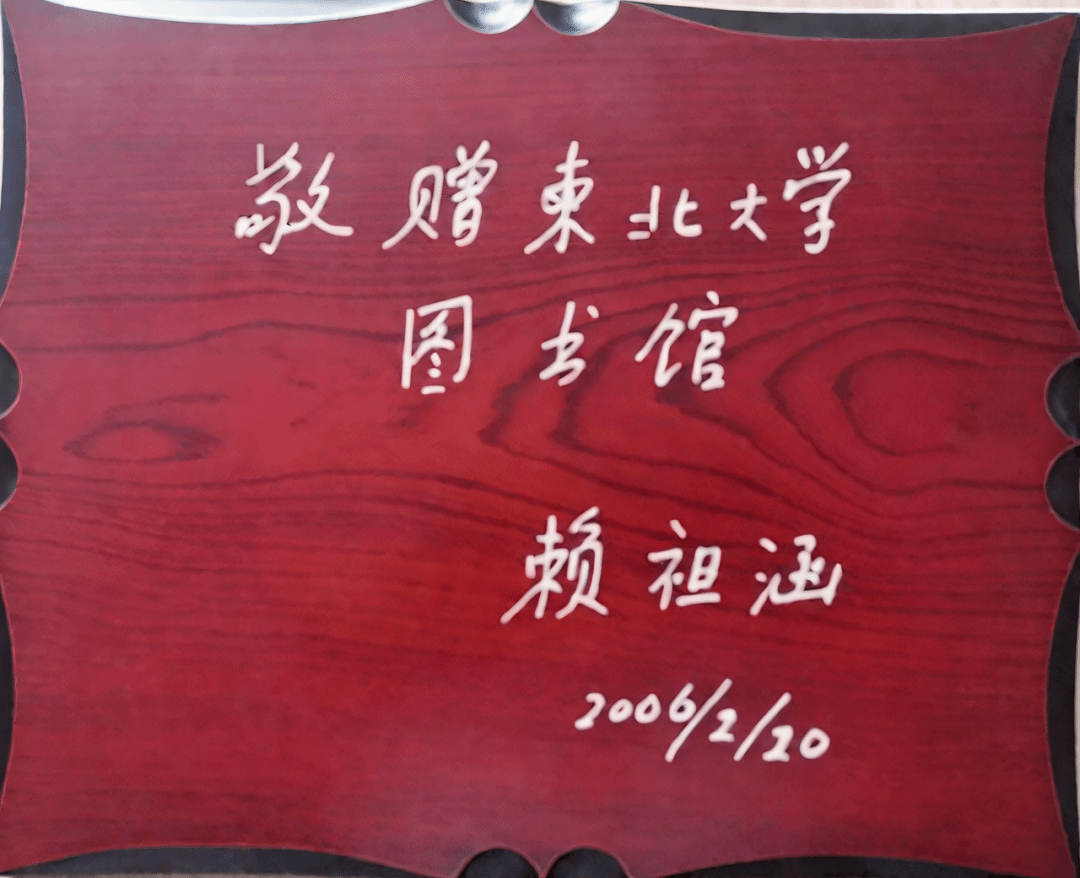 敬赠東北大学
图书馆
赖祖涵
2006/2/20